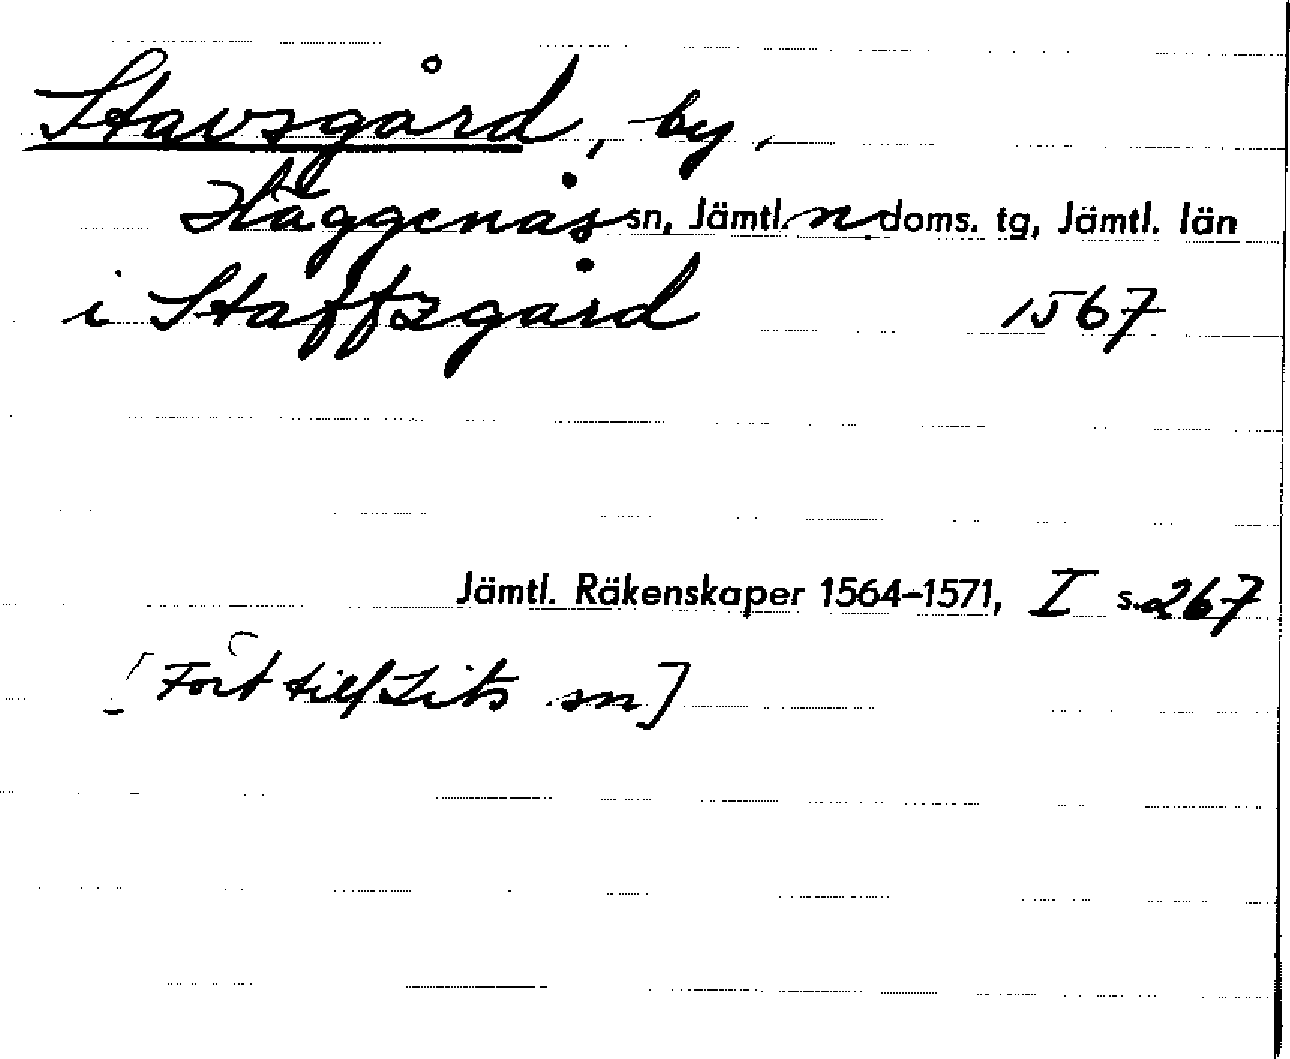 Stavsgård, by,
Häggenås sn, Jämtl. n. doms. tg, Jämtl. län
i Staffzgård 1567
Jämtl. Räkenskaper 1564–1571, I s. 267
[Fört till Lits sn]